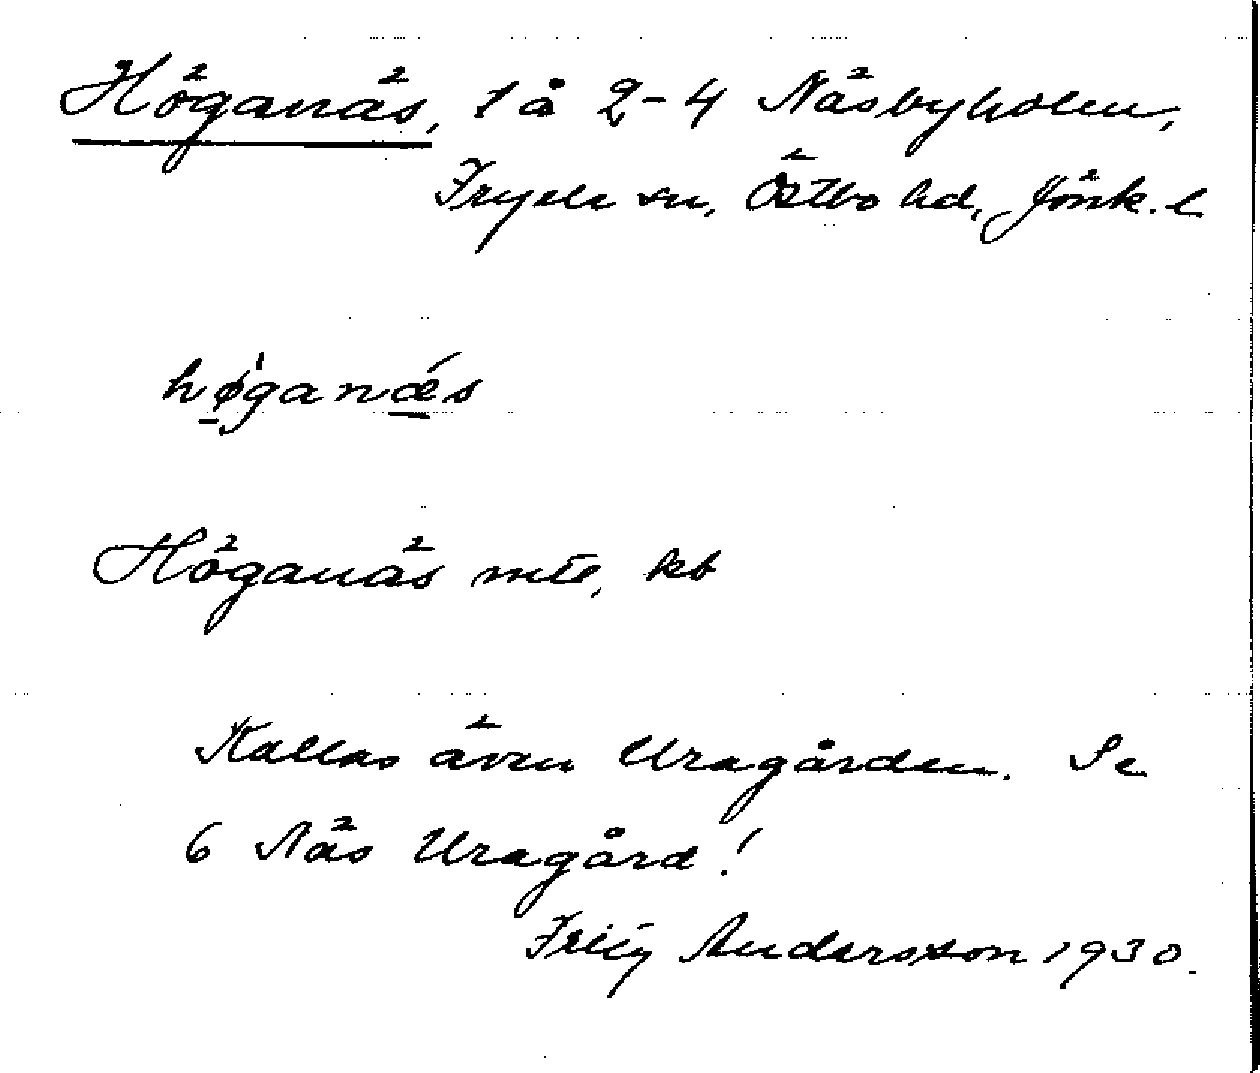 Höganäs, 1 å 2-4 Näsbyholm,
Fryele sn, Östbo hd, Jönk. l
høganæs
Höganäs mtl, kb
Kallas även Uragården. Se
6 Näs Uragård!
Andersson 1930.